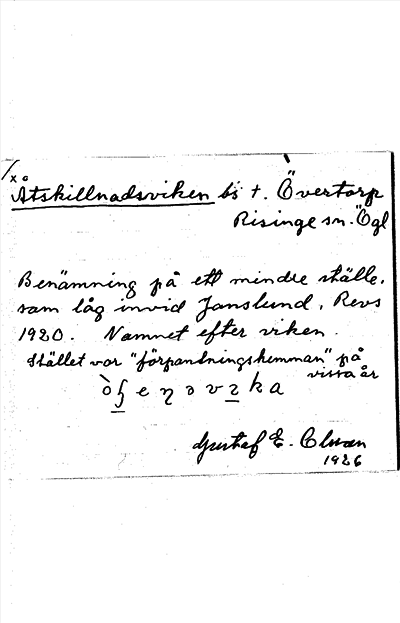 x Åtskillnadsviken bs t. Övertorp
Risinge sn. Ögl
Benämning på ett mindre ställe,
som låg invid Janslund. Revs
1920. Namnet efter viken.
Stället var "förpantningshemman" på
vissa år
Gustaf E.
1926